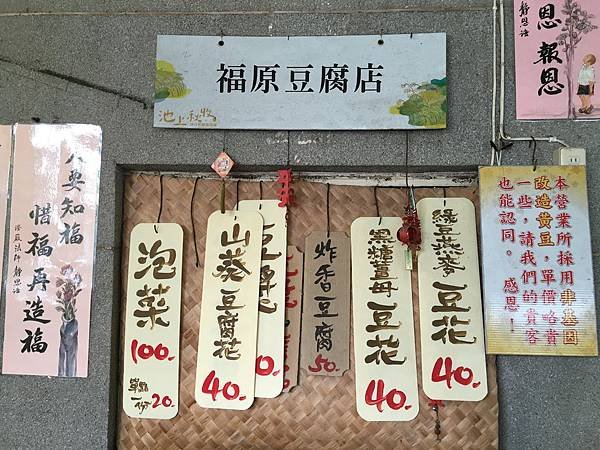 福原豆腐店
池上秋收
恩報恩
靜思語
人要知福
惜福再造福
證嚴法師靜思語
泡菜
100.
單點
一份20.
山葵豆腐花
40.
豆漿
0.
炸香豆腐
50.
黑糖薑母豆花
40.
綠豆燕麥豆花
40.
本營業所採用非基因
改造黃豆，單價略貴
一些，請我們的貴客
也能認同。感恩！